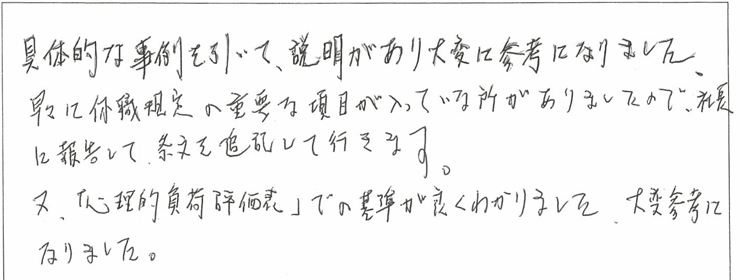 具体的な事例を引いて、説明があり大変に参考になりました、
早々に休職規定の重要な項目が入っていな所がありましたので、社長
に報告して、条文を追記して行きます。
又、「心理的負荷評価表」での基準が良くわかりました、大変参考に
なりました。